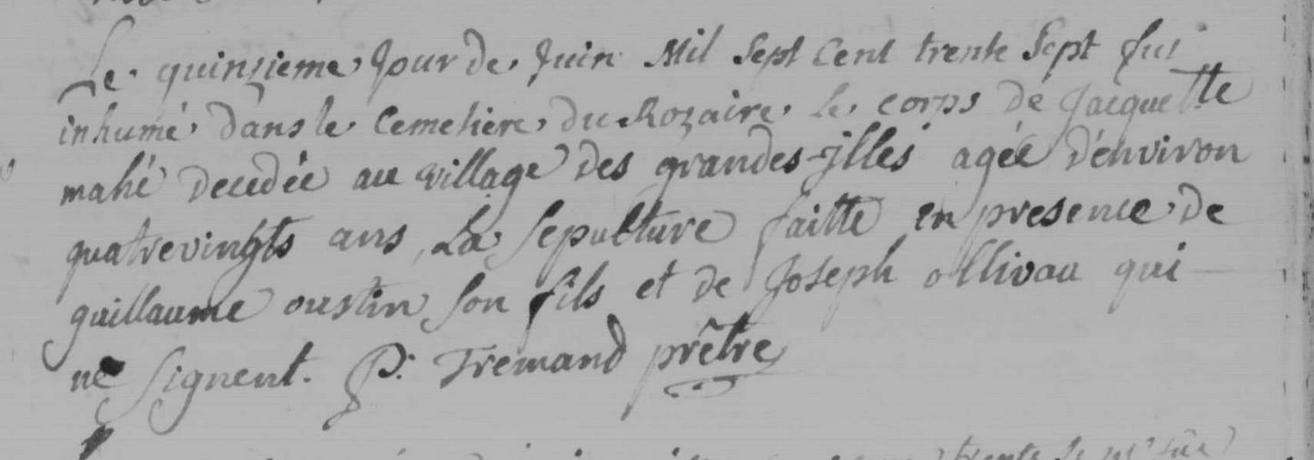 Le quinzieme Jour de Juin Mil Sept Cent trente Sept fut
inhumé dans le Cemetiere du Rozaire le corps de Jacquette
mahé decedée au village des grandes-jlles agée d'environ
quatrevingts ans, La Sepulture faitte en presence de
guillaume oustin Son fils et de Joseph ollivau qui
ne Signent. P. Tremand prêtre
trente